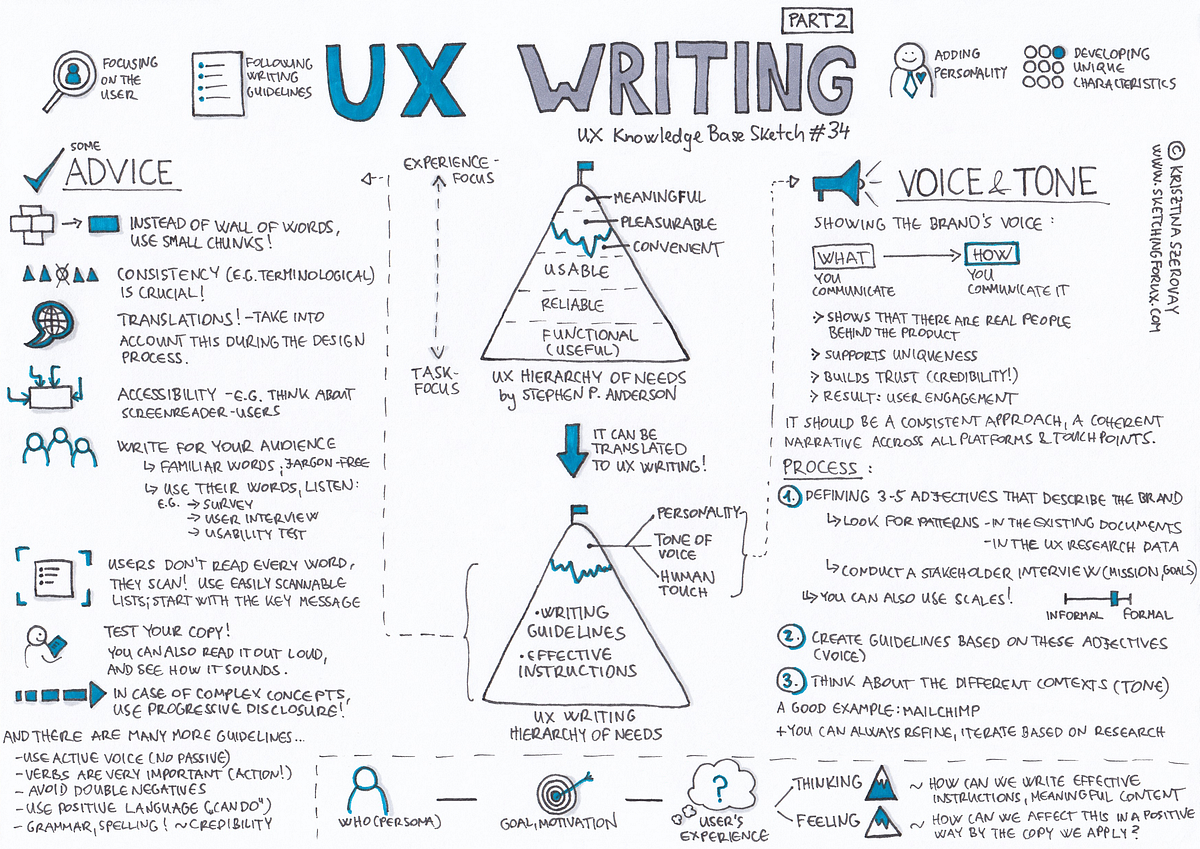 PART 2
FOCUSING
ON THE
USER
FOLLOWING
WRITING
GUIDELINES
UX WRITING
ADDING
PERSONALITY
DEVELOPING
UNIQUE
CHARACTERISTICS
UX Knowledge Base Sketch #34
© KRISZTINA SZEROVAY
WWW.SKETCHINGFORUX.COM
SOME
ADVICE
INSTEAD OF WALL OF WORDS,
USE SMALL CHUNKS!
CONSISTENCY (E.G. TERMINOLOGICAL)
IS CRUCIAL!
TRANSLATIONS! - TAKE INTO
ACCOUNT THIS DURING THE DESIGN
PROCESS.
ACCESSIBILITY - E.G. THINK ABOUT
SCREENREADER-USERS
WRITE FOR YOUR AUDIENCE
↳ FAMILIAR WORDS; JARGON-FREE
↳ USE THEIR WORDS, LISTEN:
E.G. → SURVEY
→ USER INTERVIEW
→ USABILITY TEST
USERS DON'T READ EVERY WORD,
THEY SCAN! USE EASILY SCANNABLE
LISTS; START WITH THE KEY MESSAGE
TEST YOUR COPY!
YOU CAN ALSO READ IT OUT LOUD,
AND SEE HOW IT SOUNDS.
IN CASE OF COMPLEX CONCEPTS,
USE PROGRESSIVE DISCLOSURE!
AND THERE ARE MANY MORE GUIDELINES...
- USE ACTIVE VOICE (NO PASSIVE)
- VERBS ARE VERY IMPORTANT (ACTION!)
- AVOID DOUBLE NEGATIVES
- USE POSITIVE LANGUAGE („CAN DO")
- GRAMMAR, SPELLING! ~ CREDIBILITY
EXPERIENCE-
FOCUS
TASK-
FOCUS
MEANINGFUL
PLEASURABLE
CONVENIENT
USABLE
RELIABLE
FUNCTIONAL
(USEFUL)
UX HIERARCHY OF NEEDS
by STEPHEN P. ANDERSON
IT CAN BE
TRANSLATED
TO UX WRITING!
PERSONALITY
TONE OF
VOICE
HUMAN
TOUCH
• WRITING
GUIDELINES
• EFFECTIVE
INSTRUCTIONS
UX WRITING
HIERARCHY OF NEEDS
VOICE & TONE
SHOWING THE BRAND'S VOICE:
WHAT
YOU
COMMUNICATE
HOW
YOU
COMMUNICATE IT
> SHOWS THAT THERE ARE REAL PEOPLE
BEHIND THE PRODUCT
> SUPPORTS UNIQUENESS
> BUILDS TRUST (CREDIBILITY!)
> RESULT: USER ENGAGEMENT
IT SHOULD BE A CONSISTENT APPROACH, A COHERENT
NARRATIVE ACCROSS ALL PLATFORMS & TOUCHPOINTS.
PROCESS:
1. DEFINING 3-5 ADJECTIVES THAT DESCRIBE THE BRAND
↳ LOOK FOR PATTERNS - IN THE EXISTING DOCUMENTS
- IN THE UX RESEARCH DATA
↳ CONDUCT A STAKEHOLDER INTERVIEW (MISSION, GOALS)
↳ YOU CAN ALSO USE SCALES!
INFORMAL FORMAL
2. CREATE GUIDELINES BASED ON THESE ADJECTIVES
(VOICE)
3. THINK ABOUT THE DIFFERENT CONTEXTS (TONE)
A GOOD EXAMPLE: MAILCHIMP
+ YOU CAN ALWAYS REFINE, ITERATE BASED ON RESEARCH
WHO (PERSONA)
GOAL, MOTIVATION
?
USER'S
EXPERIENCE
THINKING
~ HOW CAN WE WRITE EFFECTIVE
INSTRUCTIONS, MEANINGFUL CONTENT
FEELING
~ HOW CAN WE AFFECT THIS IN A POSITIVE
WAY BY THE COPY WE APPLY?